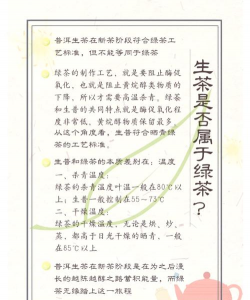 生茶是否属于绿茶？
普洱生茶在新茶阶段符合绿茶工
艺标准，但不能等同于绿茶
绿茶的制作工艺，就是要阻止酶促
氧化，也就是阻止黄烷醇类物质的
下降，所以才需要高温杀青。绿茶
和生普的共同特点就是酶促氧化程
度非常低、黄烷醇物质保留最多。
从这个角度看，生普符合晒青绿
茶的工艺标准。
生普和绿茶的本质差别在：温度
一、杀青温度：
绿茶的杀青温度叶温一般在80℃以
上；生普一般控制在55—75℃
二、干燥温度：
绿茶的干燥温度，无论是烘、炒、
蒸，都高于日光干燥的晒青，一般
在65℃以上
普洱生茶在新茶阶段是在为之后漫
长的越陈越醇之路蓄积能量，而绿
茶无缘踏上这一旅程